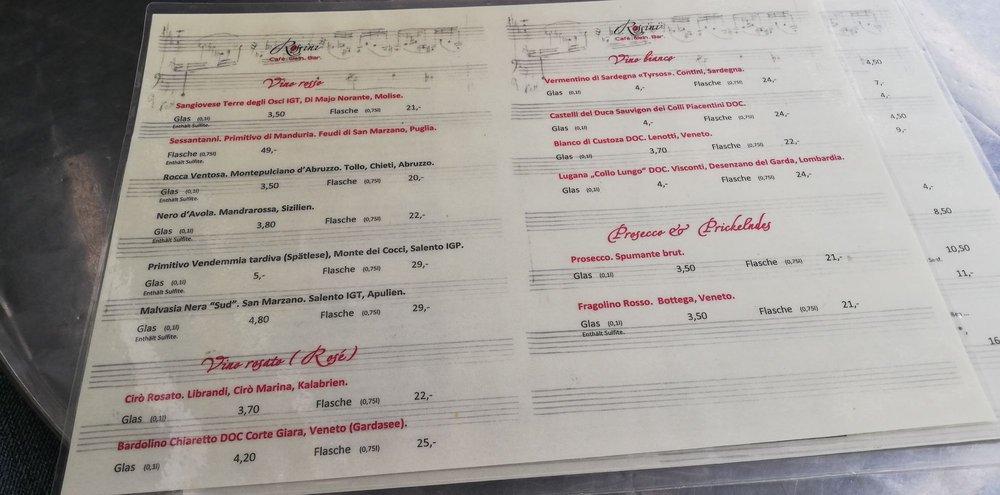 Rossini
Café. Wein. Bar.
Vino rosso
Sangiovese Terre degli Osci IGT, Di Majo Norante, Molise.
Glas (0,1l) 3,50 Flasche (0,75l) 21,-
Enthält Sulfite.
Sessantanni. Primitivo di Manduria. Feudi di San Marzano, Puglia.
Flasche (0,75l) 49,-
Enthält Sulfite.
Rocca Ventosa. Montepulciano d'Abruzzo. Tollo, Chieti, Abruzzo.
Glas (0,1l) 3,50 Flasche (0,75l) 20,-
Enthält Sulfite.
Nero d'Avola. Mandrarossa, Sizilien.
Glas (0,1l) 3,80 Flasche (0,75l) 22,-
Enthält Sulfite.
Primitivo Vendemmia tardiva (Spätlese), Monte dei Cocci, Salento IGP.
Glas (0,1l) 5,- Flasche (0,75l) 29,-
Enthält Sulfite.
Malvasia Nera "Sud". San Marzano. Salento IGT, Apulien.
Glas (0,1l) 4,80 Flasche (0,75l) 29,-
Enthält Sulfite.
Vino rosato (Rosé)
Cirò Rosato. Librandi, Cirò Marina, Kalabrien.
Glas (0,1l) 3,70 Flasche (0,75l) 22,-
Bardolino Chiaretto DOC Corte Giara, Veneto (Gardasee).
Glas (0,1l) 4,20 Flasche (0,75l) 25,-
Rossini
Café. Wein. Bar.
Vino bianco
Vermentino di Sardegna «Tyrsos». Contini, Sardegna.
Glas (0,1l) 4,- Flasche (0,75l) 24,-
Castelli del Duca Sauvigon dei Colli Piacentini DOC.
Glas (0,1l) 4,- Flasche (0,75l) 24,-
Bianco di Custoza DOC. Lenotti, Veneto.
Glas (0,1l) 3,70 Flasche (0,75l) 22,-
Lugana „Collo Lungo" DOC. Visconti, Desenzano del Garda, Lombardia.
Glas (0,1l) 4,- Flasche (0,75l) 24,-
Prosecco & Prickelndes
Prosecco. Spumante brut.
Glas (0,1l) 3,50 Flasche (0,75l) 21,-
Fragolino Rosso. Bottega, Veneto.
Glas (0,1l) 3,50 Flasche (0,75l) 21,-
Enthält Sulfite.
4,50
7,-
4,-
4,50
9,-
4,-
8,50
10,50
11,-
16